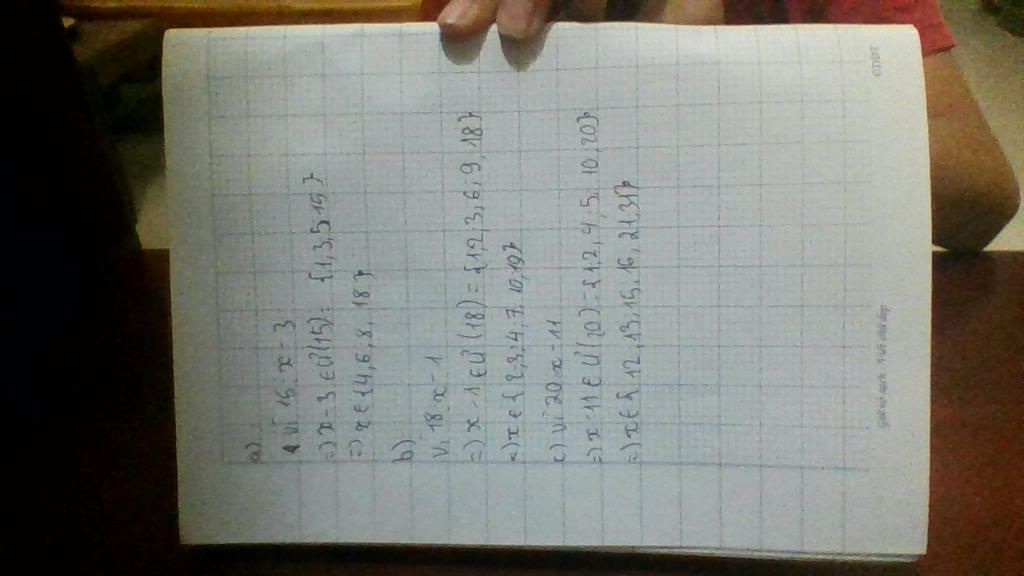 a)
Vì 15 : x - 3
=) x - 3 ∈ Ư(15) = {1, 3, 5; 15}
=) x ∈ {4, 6, 8, 18}
b)
Vì 18 : x - 1
=) x - 1 ∈ Ư(18) = {1, 2, 3, 6; 9, 18}
=) x ∈ {2, 3; 4, 7; 10, 19}
c) Vì 20 : x - 11
=) x - 11 ∈ Ư(20) = {1, 2, 4; 5; 10, 20}
=) x ∈ {12, 13, 15, 16, 21, 31}
Giữ vở sạch - Viết chữ đẹp